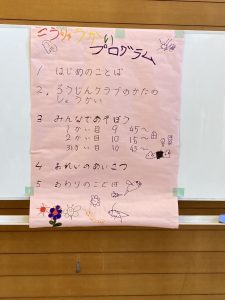 こうりゅうかい
プログラム
1 はじめのことば
2. ろうじんクラブのかたの
しょうかい
3 みんなであそぼう
1かい目 9 45〜
2かい目 10 15〜
3かい目 10 45〜
4 おれいのあいさつ
5 おわりのことば